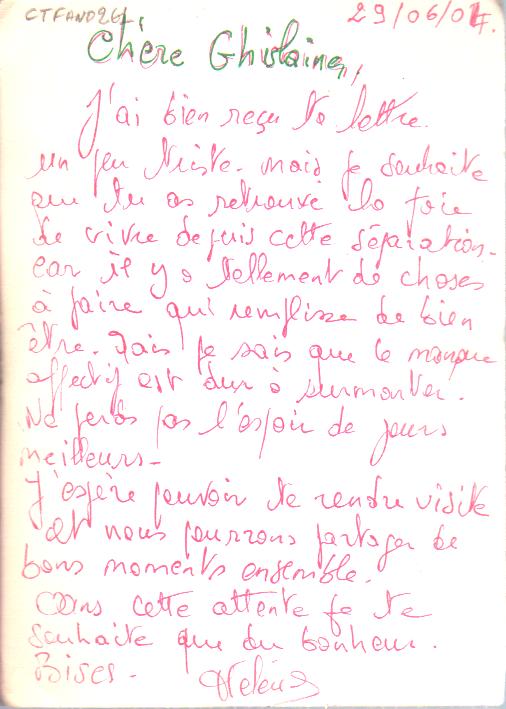 CTFAND26L
29/06/04.
Chère Ghislaine,
J'ai bien reçu ta lettre.
un peu triste. mais je souhaite
que tu as retrouvé la joie
de vivre depuis cette séparation.
car il y a tellement de choses
à faire qui remplisse de bien
être. Mais je sais que le manque
affectif est dur à surmonter.
Ne perds pas l'espoir de jours
meilleurs -
J'espère pouvoir te rendre visite
et nous pourrons partager de
bons moments ensemble.
Dans cette attente je te
souhaite que du bonheur.
Bises - Hélène